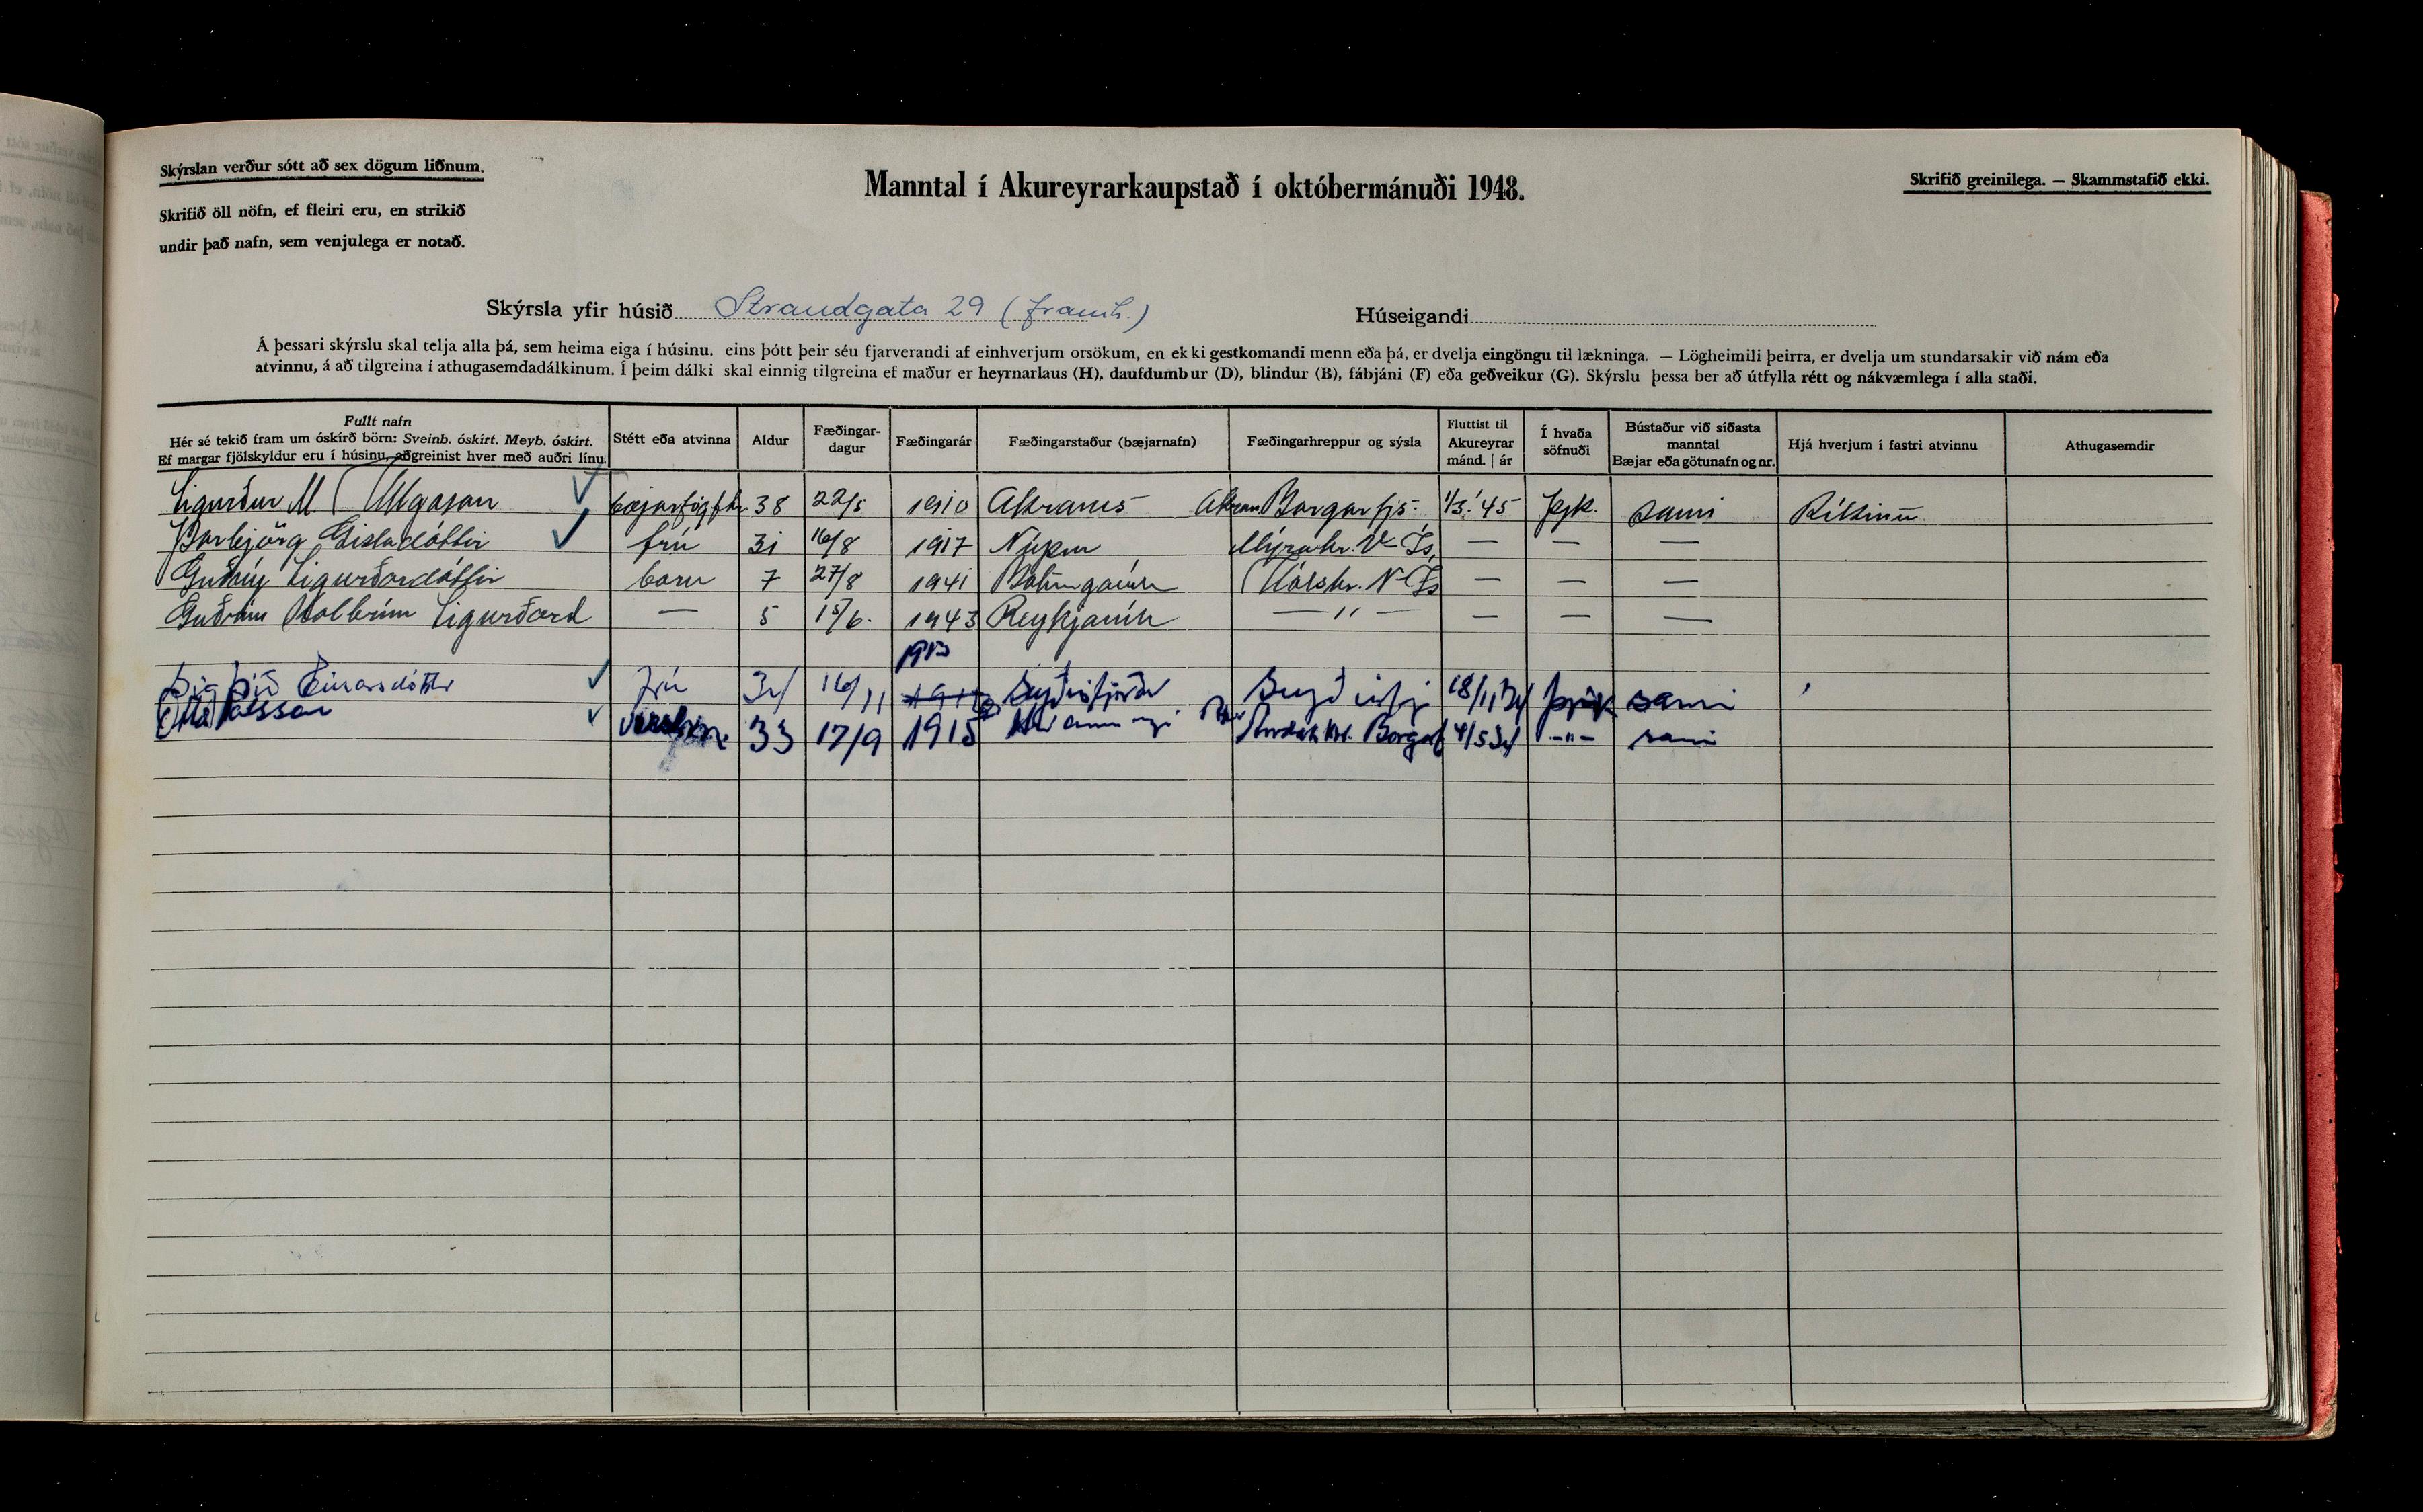 Skýrslan verður sótt að sex dögum liðnum.
Skrifið öll nöfn, ef fleiri eru, en strikið
undir það nafn, sem venjulega er notað.
Manntal í Akureyrarkaupstað í októbermánuði 1948.
Skrifið greinilega. — Skammstafið ekki.
Skýrsla yfir húsið Strandgata 29 (framh.) Húseigandi
Á þessari skýrslu skal telja alla þá, sem heima eiga í húsinu, eins þótt þeir séu fjarverandi af einhverjum orsökum, en ekki gestkomandi menn eða þá, er dvelja eingöngu til lækninga. — Lögheimili þeirra, er dvelja um stundarsakir við nám eða
atvinnu, á að tilgreina í athugasemdadálkinum. Í þeim dálki skal einnig tilgreina ef maður er heyrnarlaus (H), daufdumbur (D), blindur (B), fábjáni (F) eða geðveikur (G). Skýrslu þessa ber að útfylla rétt og nákvæmlega í alla staði.
Fullt nafn
Hér sé tekið fram um óskírð börn: Sveinb. óskírt. Meyb. óskírt.
Ef margar fjölskyldur eru í húsinu, aðgreinist hver með auðri línu.
Stétt eða atvinna
Aldur
Fæðingar-
dagur
Fæðingarár
Fæðingarstaður (bæjarnafn)
Fæðingarhreppur og sýsla
Fluttist til
Akureyrar
mánd. | ár
Í hvaða
söfnuði
Bústaður við síðasta
manntal
Bæjar eða götunafn og nr.
Hjá hverjum í fastri atvinnu
Athugasemdir
Sigurður M. Helgason 38 22/5 1910 Akranes Borgarfjs. 1/3 '45 Þjk. sami Ríkinu
Þorbjörg Gísladóttir frú 31 16/8 1917 Núpur Mýrahr. V-Ís. — — —
Guðný Sigurðardóttir barn 7 27/8 1941 Bolungarvík Hólshr. N-Ís — — —
Guðrún Kolbrún Sigurðard — 5 15/6. 1943 Reykjavík — " — — — —
1913
Einarsdóttir frú 34 16/11 Seyðisfjörður 18/11 34 sami
Pálsson 33 17/9 1915 4/5 34 -"- sami